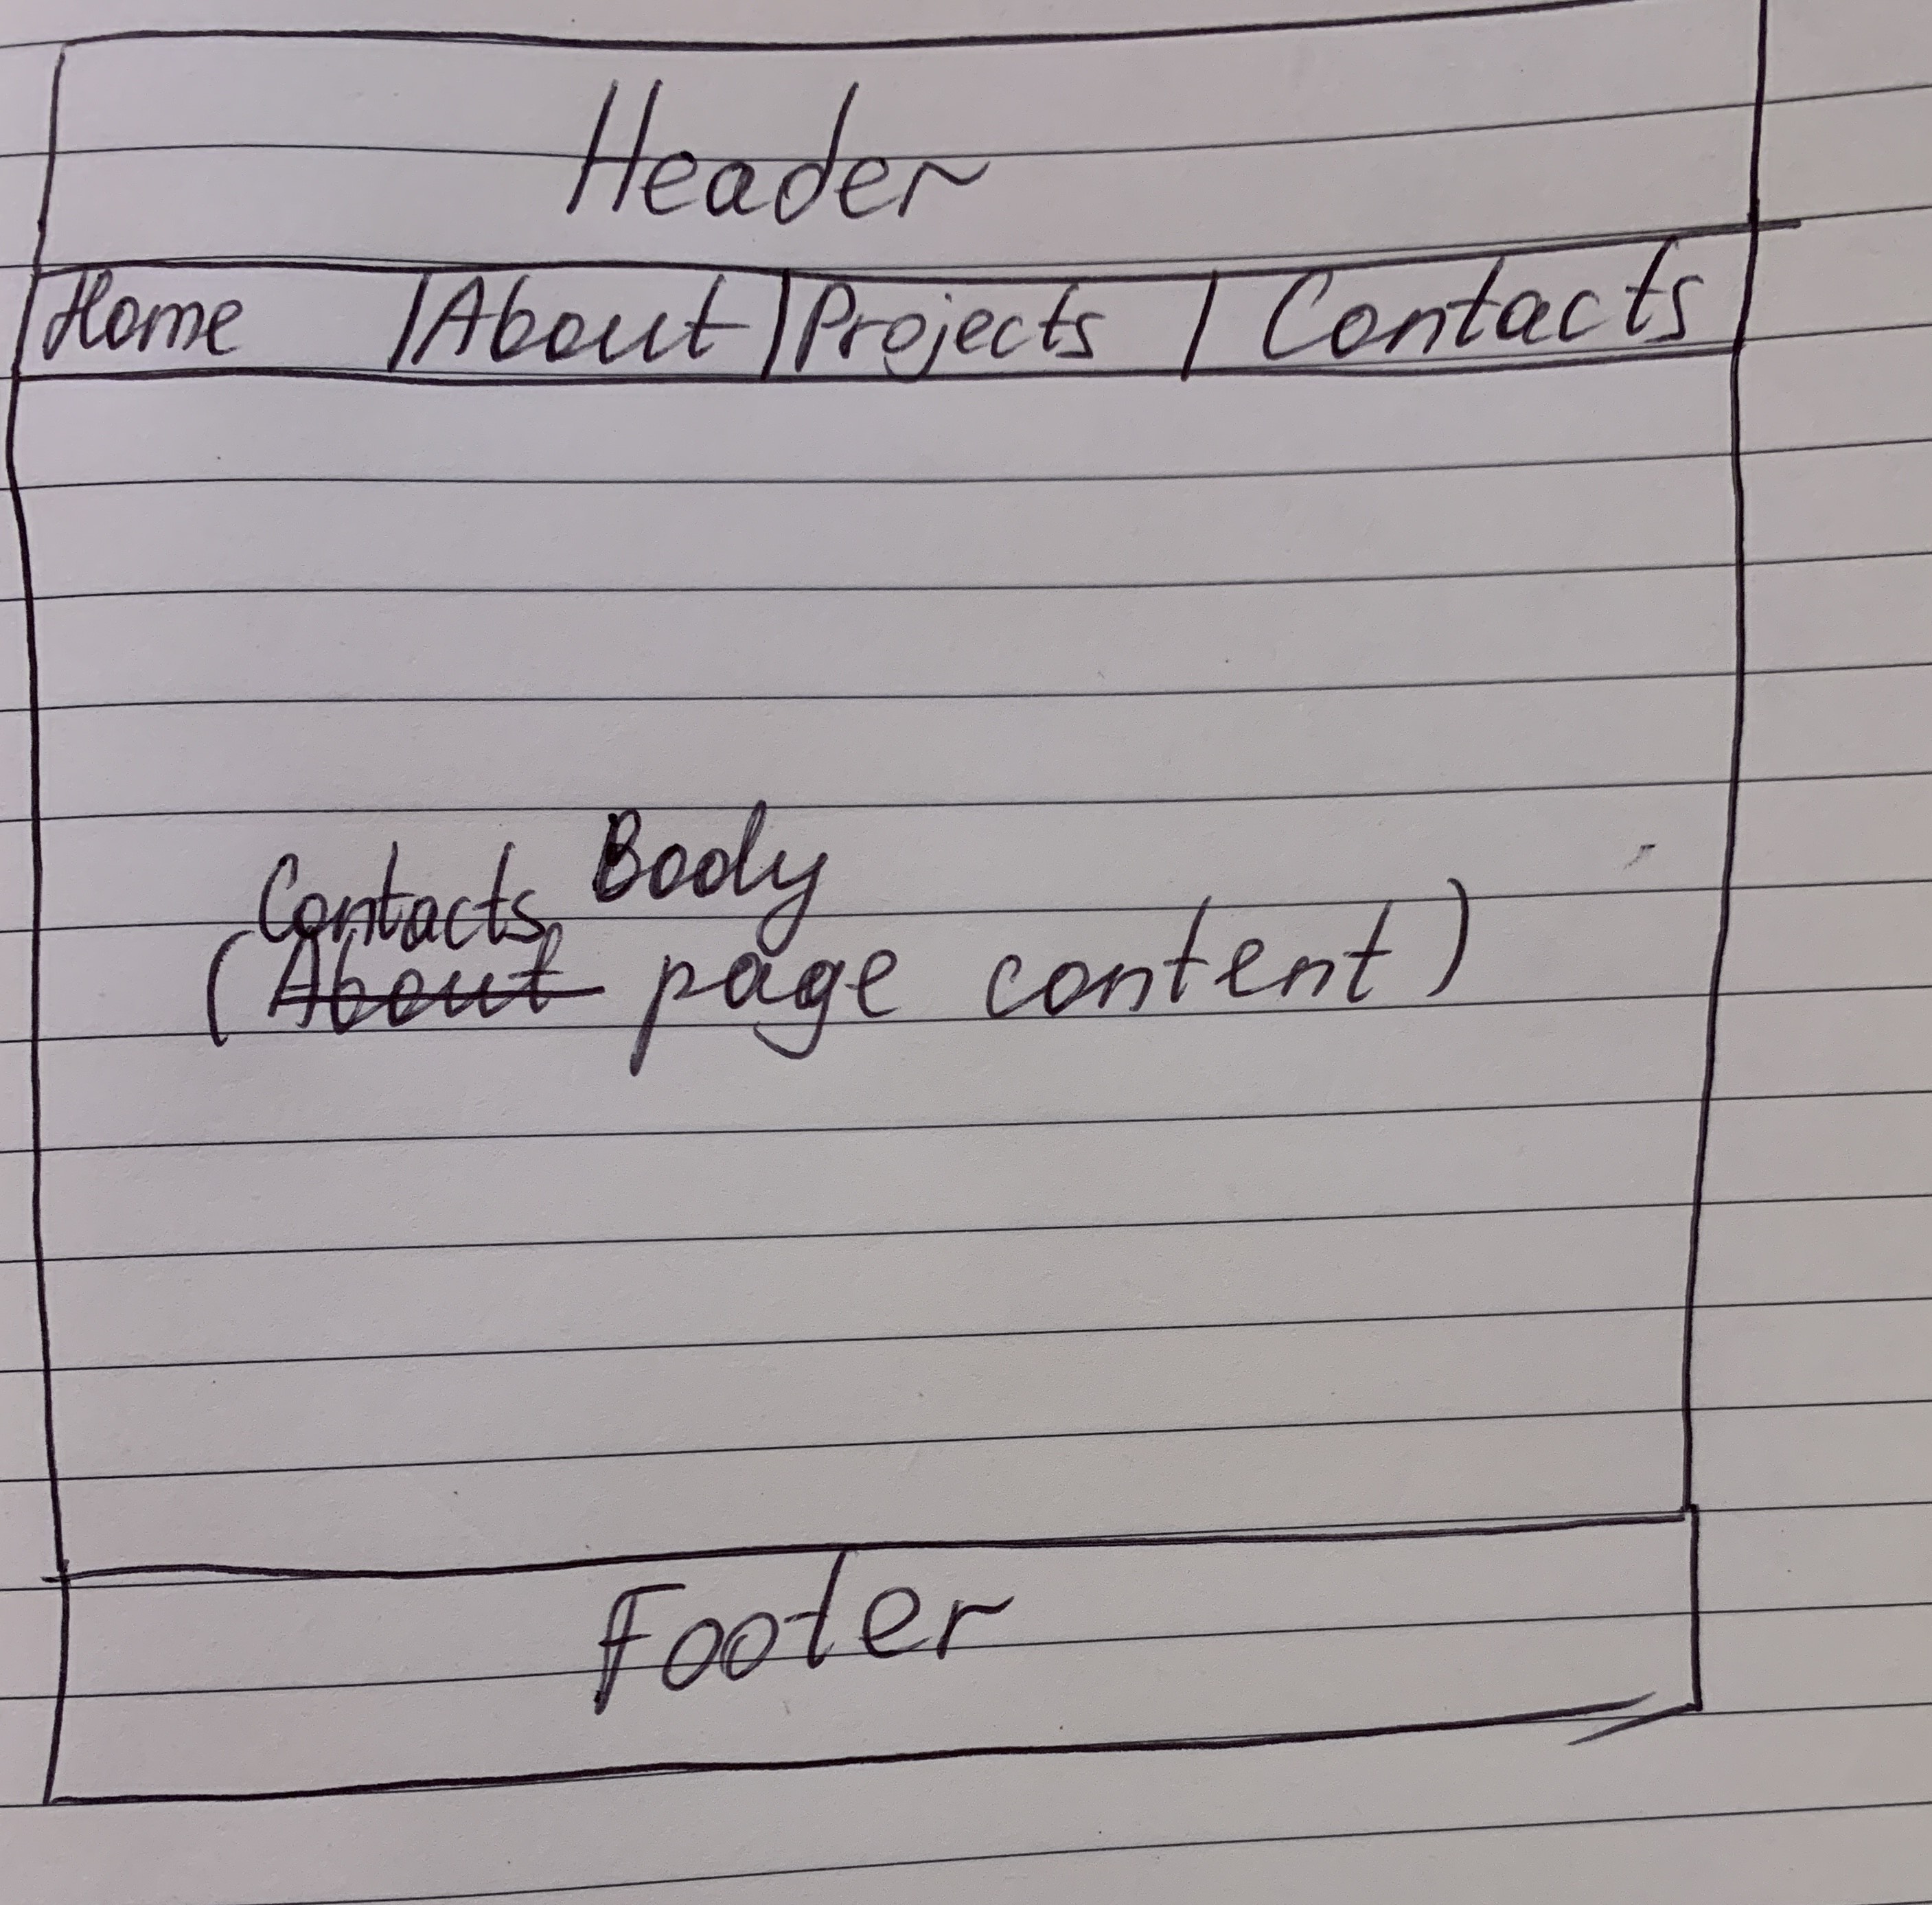 Header
Home | About | Projects | Contacts
Body
Contacts
(About page content)
Footer